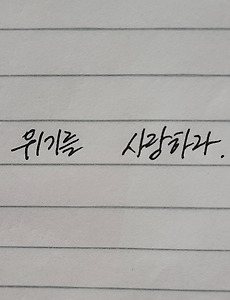 위기를 사랑하라.